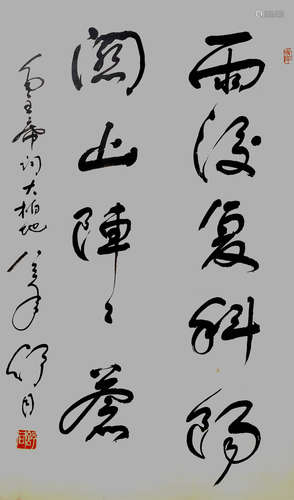 雨後复斜陽
關山陣〻蒼
毛主席詞大柏地